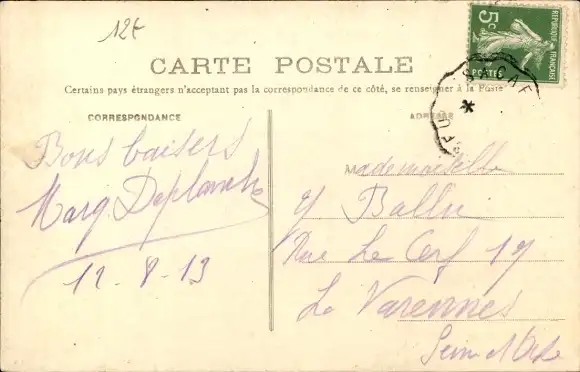 12€
5c
REPUBLIQUE FRANÇAISE
POSTES
CARTE POSTALE
Certains pays étrangers n'acceptant pas la correspondance de ce côté, se renseigner à la Poste
CORRESPONDANCE
ADRESSE
Bons baisers
Marg. Deplanche
12-8-13
Mademoiselle
Ballu
Rue Le Cerf 17
La Varennes
Seine et Oise